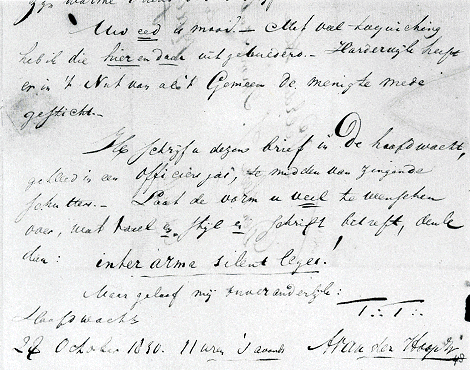 zijn warme
Uw eed is mooi. – Met veel toejuiching
heb ik die hier en daar uitgebulderd. – Harderwijk heeft
er in 't Nut van al't Gemeen de menigte mede
gesticht. –
Ik schrijf u dezen brief in De hoofdwacht,
gekleed in een officiers jas, te midden van zingende
schutters. – Laat de vorm u veel te wenschen
over, wat taal en stijl en schrift betreft, denk
dan: inter arma silent leges!
Maar geloof mij onveranderlijk:
T: T:
Hoofdwacht
24 October 1830. 11 uren 's avonds A. van der Hoop